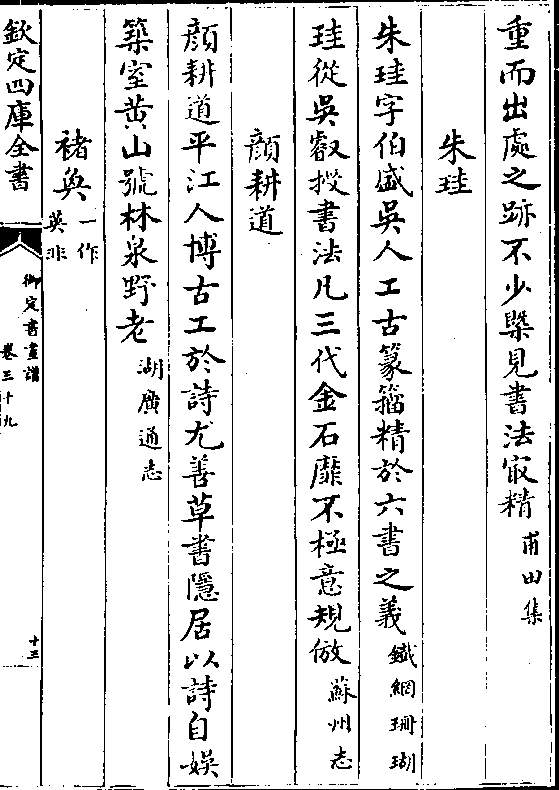 重而出處之跡不少槩見書法㝡精甫田集
朱珪
朱珪字伯盛吳人工古篆籀精於六書之義鐵網珊瑚
珪從吳叡授書法凡三代金石靡不極意規倣蘇州志
顔耕道
顔耕道平江人博古工於詩尤善草書隱居以詩自娯
築室黄山號林泉野老湖廣通志
褚奐一作英非
欽定四庫全書
御定書畫譜
卷三十九
十三